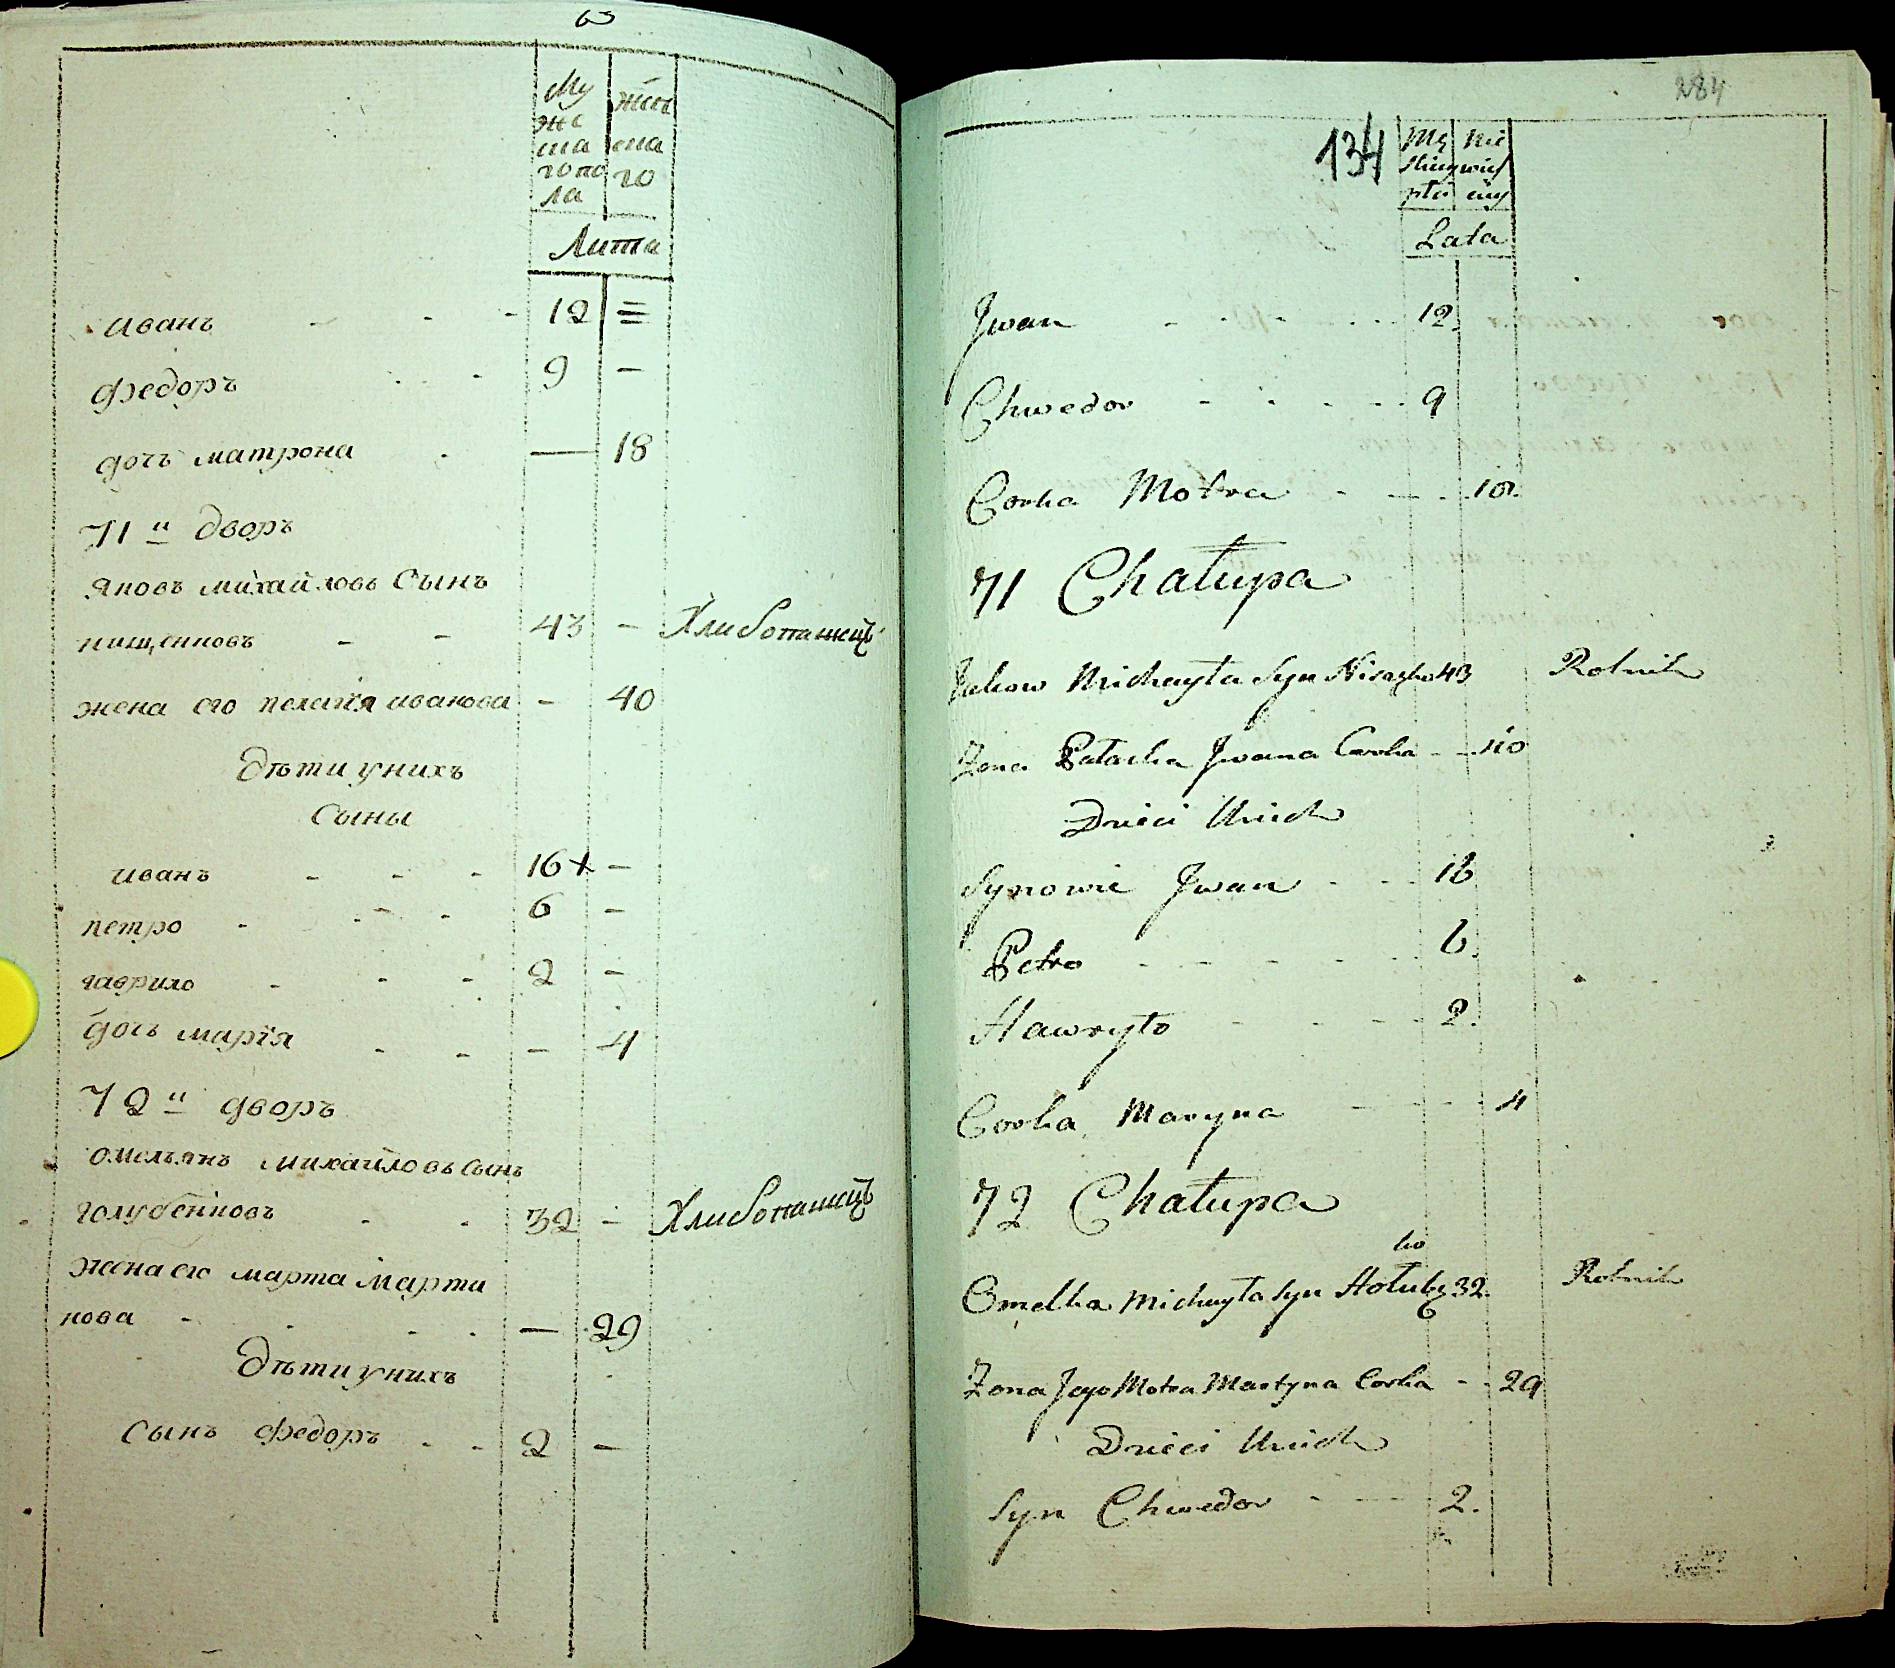 Му жес
жес ша
ша ена
го по го
ла
Лита
иванъ - - - 12 =
федоръ - - - 9 -
дочъ матрона - — 18
71 й дворъ
яковъ михайловъ Сынъ
нищенковъ - - 43 - Хлибопашецъ
жена его пелагія иванова - 40
дѣти унихъ
Сыны
иванъ - - - 16 + -
петро - - - 6 -
гаврило - - - 2 -
дочь марія - - - 4
72 й дворъ
омельянъ михайловъ сынъ
голубенковъ - - 32 - Хлибопашецъ
жена его марта марти
нова - - - - — 29
дѣти унихъ
Сынъ федоръ - - 2 -
284
134
Lata
Jwan - - - - 12.
Chwedor - - - - 9
Corka Motra - - - 18.
71 Chałupa
Jakow Michayła Syn 43 Rolnik
Zona Pałaska Jwana Corka - - 40
Dzieci Unich
Synowie Jwan - - 16
Petro - - - - 6.
Hawryło - - - - 2.
Corka Maryna - - - - 4
72 Chałupa
ko
Omelka Michayła Syn Hołub 32. Rolnik
Zona Jego Motra Martyna Corka - - 29
Dzieci Unich
Syn Chwedor - - - 2.